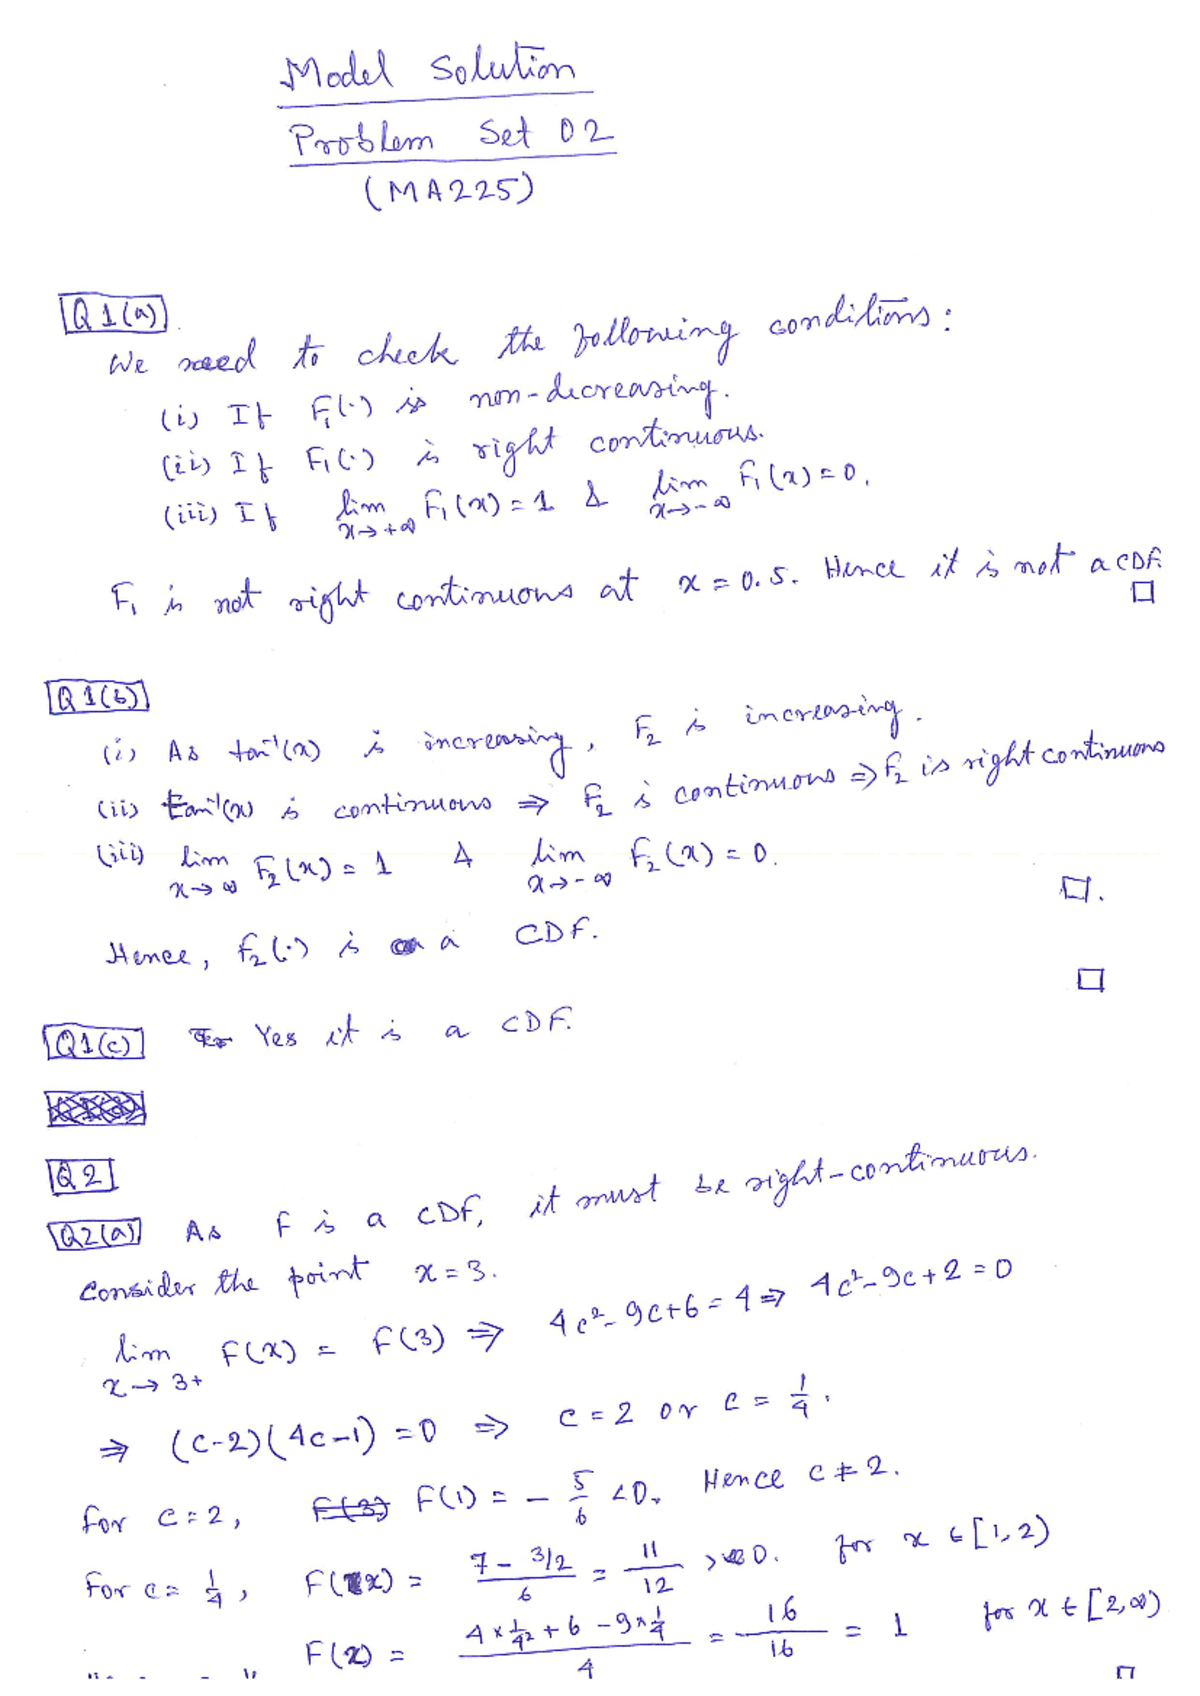 Model Solution
Problem Set 02
(MA225)
Q1(a)
We need to check the following conditions:
(i) If F₁(·) is non-decreasing.
(ii) If F₁(·) is right continuous.
(iii) If lim x→+∞ F₁(x) = 1 & lim x→-∞ F₁(x) = 0.
F₁ is not right continuous at x = 0.5. Hence it is not a CDF. □
Q1(b)
(i) As tan⁻¹(x) is increasing, F₂ is increasing.
(ii) tan⁻¹(x) is continuous ⇒ F₂ is continuous ⇒ F₂ is right continuous
(iii) lim x→∞ F₂(x) = 1 & lim x→-∞ F₂(x) = 0.
□.
Hence, F₂(·) is a CDF.
□
Q1(c) Yes it is a CDF.
Q2
Q2(a) As F is a CDF, it must be right-continuous.
Consider the point x = 3.
lim x→3+ F(x) = F(3) ⇒ 4c²-9c+6 = 4 ⇒ 4c²-9c+2 = 0
⇒ (c-2)(4c-1) = 0 ⇒ c = 2 or c = 1/4.
For c = 2, F(3) F(1) = - 5/6 < 0. Hence c ≠ 2.
For c = 1/4, F(x) = (7 - 3/2)/6 = 11/12 > 0. for x ∈ [1, 2)
F(x) = (4 × 1/4² + 6 - 9 × 1/4)/4 = 16/16 = 1 for x ∈ [2, ∞)
□